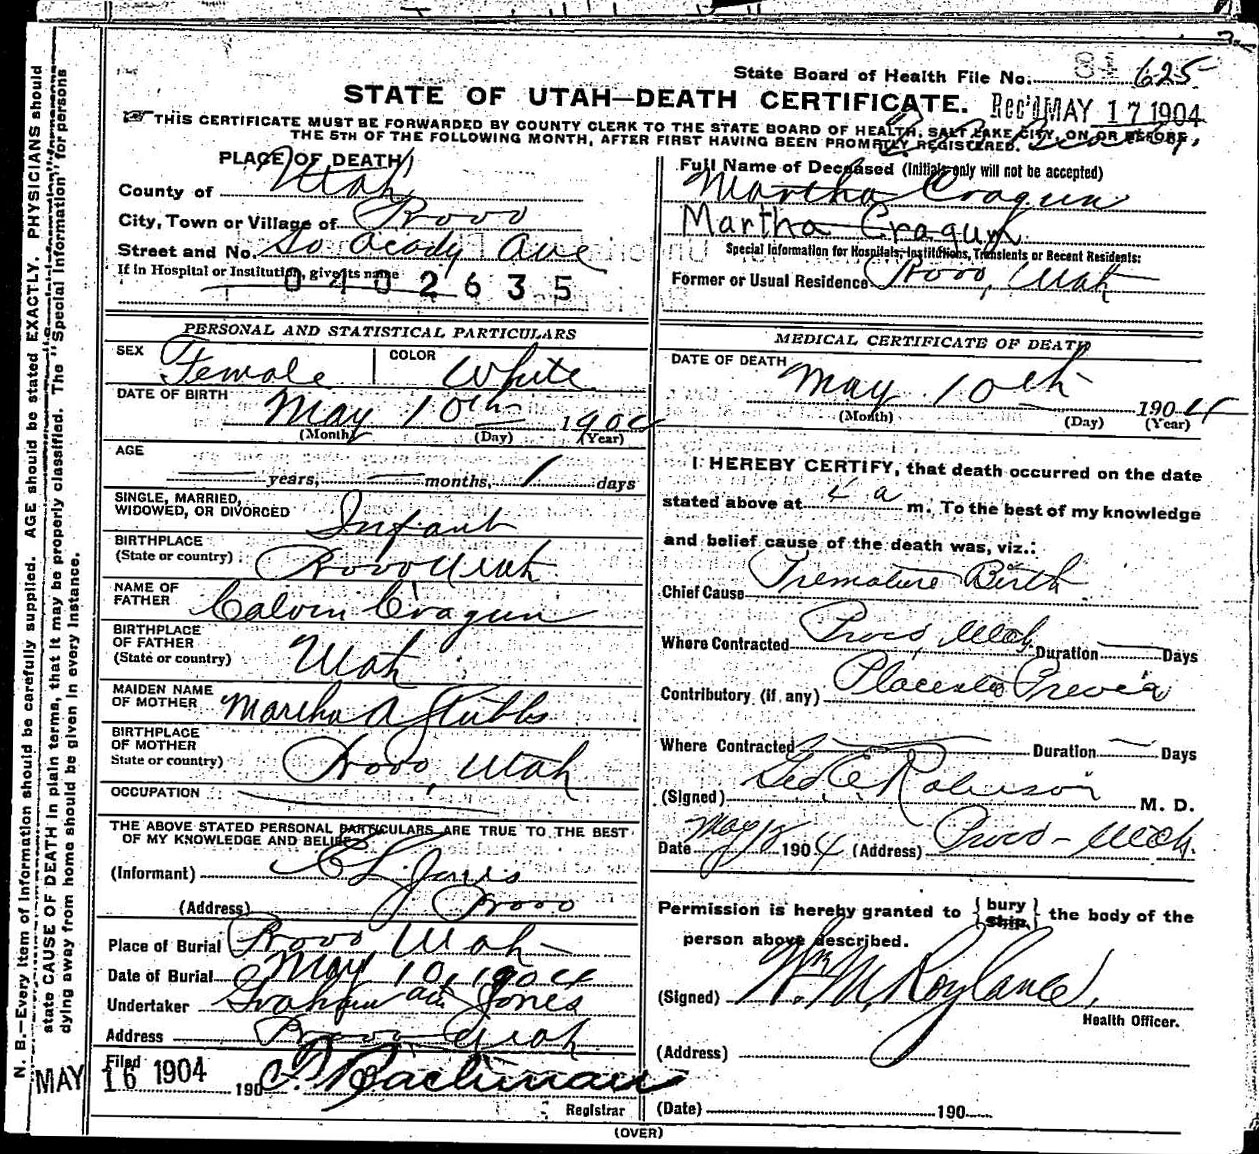 State Board of Health File No. 84 625
STATE OF UTAH—DEATH CERTIFICATE. Rec'd MAY 17 1904
THIS CERTIFICATE MUST BE FORWARDED BY COUNTY CLERK TO THE STATE BOARD OF HEALTH, SALT LAKE CITY, ON OR BEFORE
THE 5TH OF THE FOLLOWING MONTH, AFTER FIRST HAVING BEEN PROMPTLY REGISTERED.
PLACE OF DEATH
County of Utah
City, Town or Village of Provo
Street and No. So Acady Ave
If in Hospital or Institution, give its name
0402635
Full Name of Deceased (Initials only will not be accepted)
Martha Cragun
Martha Cragun
Special Information for Hospitals, Institutions, Transients or Recent Residents:
Former or Usual Residence Provo, Utah
PERSONAL AND STATISTICAL PARTICULARS
SEX Female COLOR White
DATE OF BIRTH May 10th 1904
(Month) (Day) (Year)
AGE
— years, — months, 1 days
SINGLE, MARRIED,
WIDOWED, OR DIVORCED Infant
BIRTHPLACE
(State or country) Provo Utah
NAME OF
FATHER Calvin Cragun
BIRTHPLACE
OF FATHER
(State or country) Utah
MAIDEN NAME
OF MOTHER Martha A Stubbs
BIRTHPLACE
OF MOTHER
State or country) Provo, Utah
OCCUPATION
THE ABOVE STATED PERSONAL PARTICULARS ARE TRUE TO THE BEST
OF MY KNOWLEDGE AND BELIEF
(Informant) C L Jones
(Address) Provo
Place of Burial Provo Utah
Date of Burial May 10, 1904
Undertaker Graham and Jones
Address Provo Utah
Filed
MAY 16 1904 190
Registrar
MEDICAL CERTIFICATE OF DEATH
DATE OF DEATH
May 10th 1904
(Month) (Day) (Year)
I HEREBY CERTIFY, that death occurred on the date
stated above at 4 a m. To the best of my knowledge
and belief cause of the death was, viz.:
Chief Cause Premature Birth
Where Contracted Provo, Utah Duration — Days
Contributory (if any) Placenta Previa
Where Contracted — Duration — Days
(Signed) Geo E Robison M. D.
Date May 1904 (Address) Provo - Utah.
Permission is hereby granted to { bury ship } the body of the
person above described.
(Signed) Wm M. Roylance,
Health Officer.
(Address)
(Date) 190
(OVER)
N. B.—Every item of information should be carefully supplied. AGE should be stated EXACTLY. PHYSICIANS should
state CAUSE OF DEATH in plain terms, that it may be properly classified. The "Special Information" for persons
dying away from home should be given in every instance.